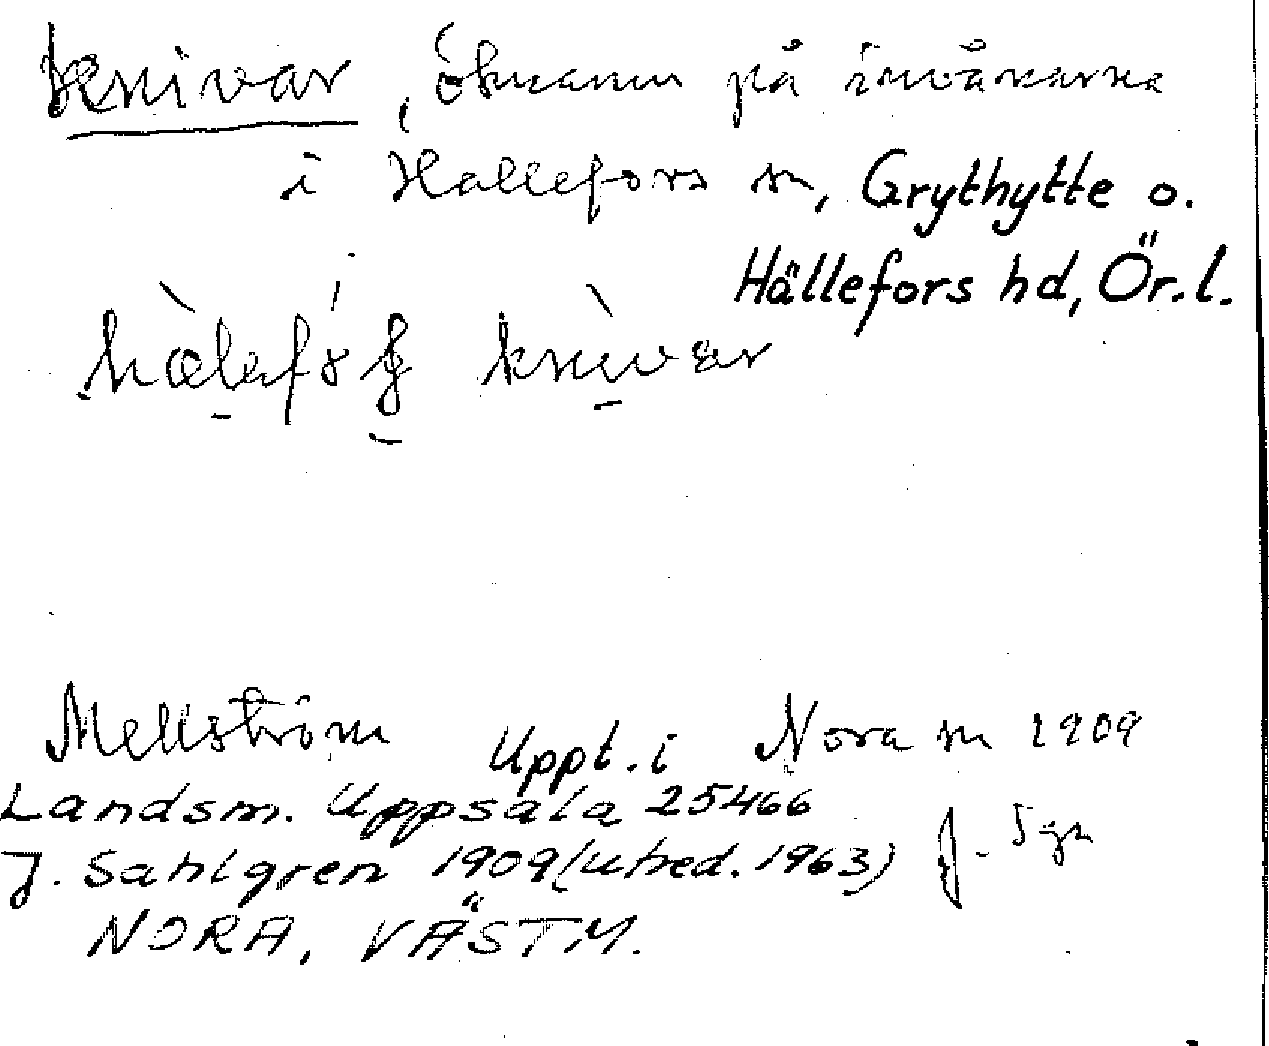 knivar, öknamn på invånarna
i Hällefors sn, Grythytte o.
Hällefors hd, Ör.l.
knìvar
Mellström Uppt. i Nora sn 1909
Landsm. Uppsala 25466
J. Sahlgren 1909 (utred. 1963) J. Sgn
NORA, VÄSTM.